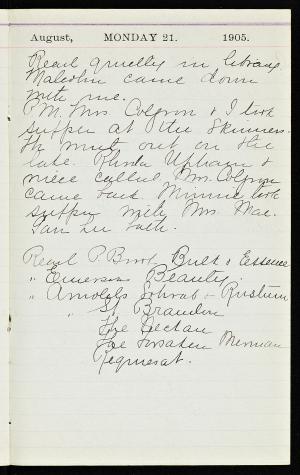 August, MONDAY 21. 1905.
Read quietly in library
Malcolm came down
with me.
P.M. Mrs. Colgron & I took
supper at the Skinners.
We went out on the
lake. Rhoda Upham &
niece called. Mrs. Colgron
came back. Minnie took
supper with Mrs. Mac.
Ian in bath.
Read P. Book Built & Essence
" Emerson Beauty
" Arnolds Sohrab & Rustum
" St Brandon
The Nectar
The Forsaken Merman
Requiescat.